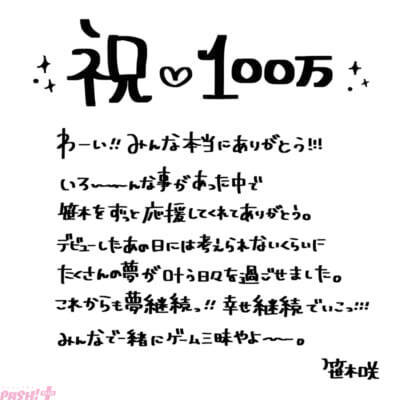 祝♡100万
わーい!! みんな本当にありがとう!!!
いろ〜〜〜んな事があった中で
笹木をずっと応援してくれてありがとう。
デビューしたあの日には考えられないくらいに
たくさんの夢が叶う日々を過ごせました。
これからも夢継続っ!! 幸せ継続でいこっ!!!
みんなで一緒にゲーム三昧やよ〜〜。
笹木咲
PASH!+